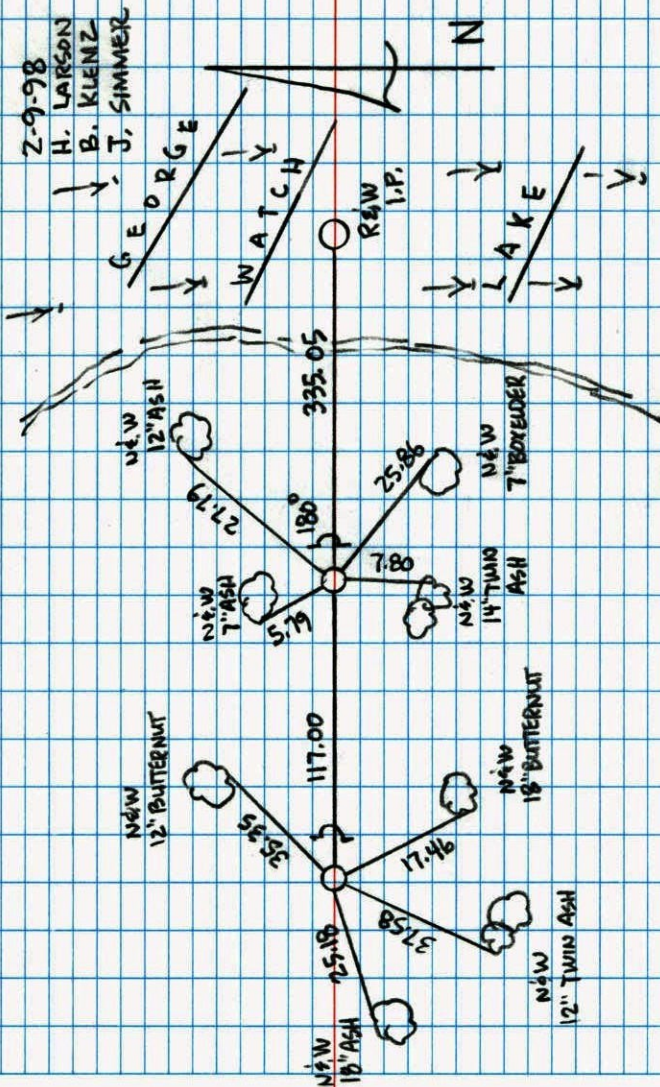 2-9-98
H. LARSON
B. KLENZ
J. SIMMER
GEORGE
WATCH
LAKE
N
R&W
I.P.
335.05
180°
N&W
12" ASH
27.79
N&W
7" ASH
5.79
25.86
N&W
7" BOXELDER
7.80
N&W
14" TWIN
ASH
117.00
N&W
12" BUTTERNUT
35.35
17.46
N&W
18" BUTTERNUT
37.58
N&W
12" TWIN ASH
25.18
N&W
18" ASH